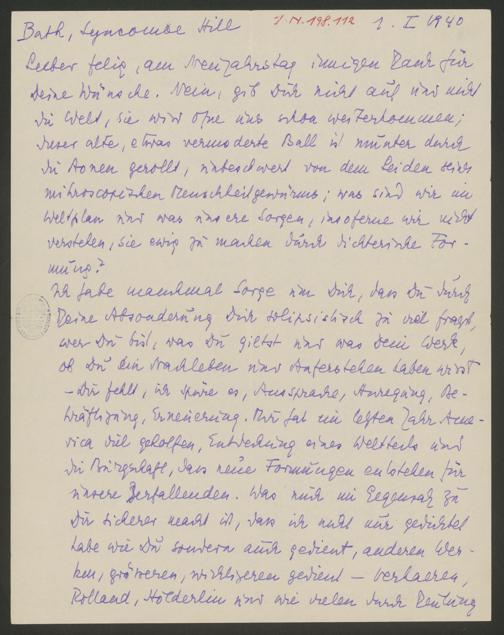 I.N. 198.112
Bath, Lyncombe Hill 1. I 1940
Lieber Felix, am Neujahrstag innigen Dank für
Deine Wünsche. Nein, gib Dich nicht auf und nicht
die Welt, sie wird ohne uns schon weiterkommen;
dieser alte, etwas vermoderte Ball ist munter durch
die Aonen gerollt, unbeschwert von dem Leiden seines
mikroscopischen Menschheitgewürms; was sind wir im
Weltplan und was unsere Sorgen, insoferne wir nicht
verstehen, sie ewig zu machen durch dichterische For-
mung?
Ich habe manchmal Sorge um Dich, dass Du durch
Deine Absonderung Dich solipsistisch zu viel fragst,
wer Du bist, was Du giltst und was Dein Werk,
ob Du ein Nachleben und Auferstehen haben wirst
– Dir fehlt, ich spüre es, Aussprache, Anregung, Be-
kräftigung, Erneuerung. Mir hat im letzten Jahr Ame-
rica viel geholfen, Entdeckung eines Weltteils und
die Bürgschaft, dass neue Formungen entstehen für
unsere Zerfallenden. Was mich im Gegensatz zu
Dir sicherer macht ist, dass ich nicht nur gedichtet
habe wie Du sondern auch gedient, anderen Wer-
ken, grösseren, wichtigeren gedient – Verhaeren,
Rolland, Hölderlin und wie vielen durch Deutung